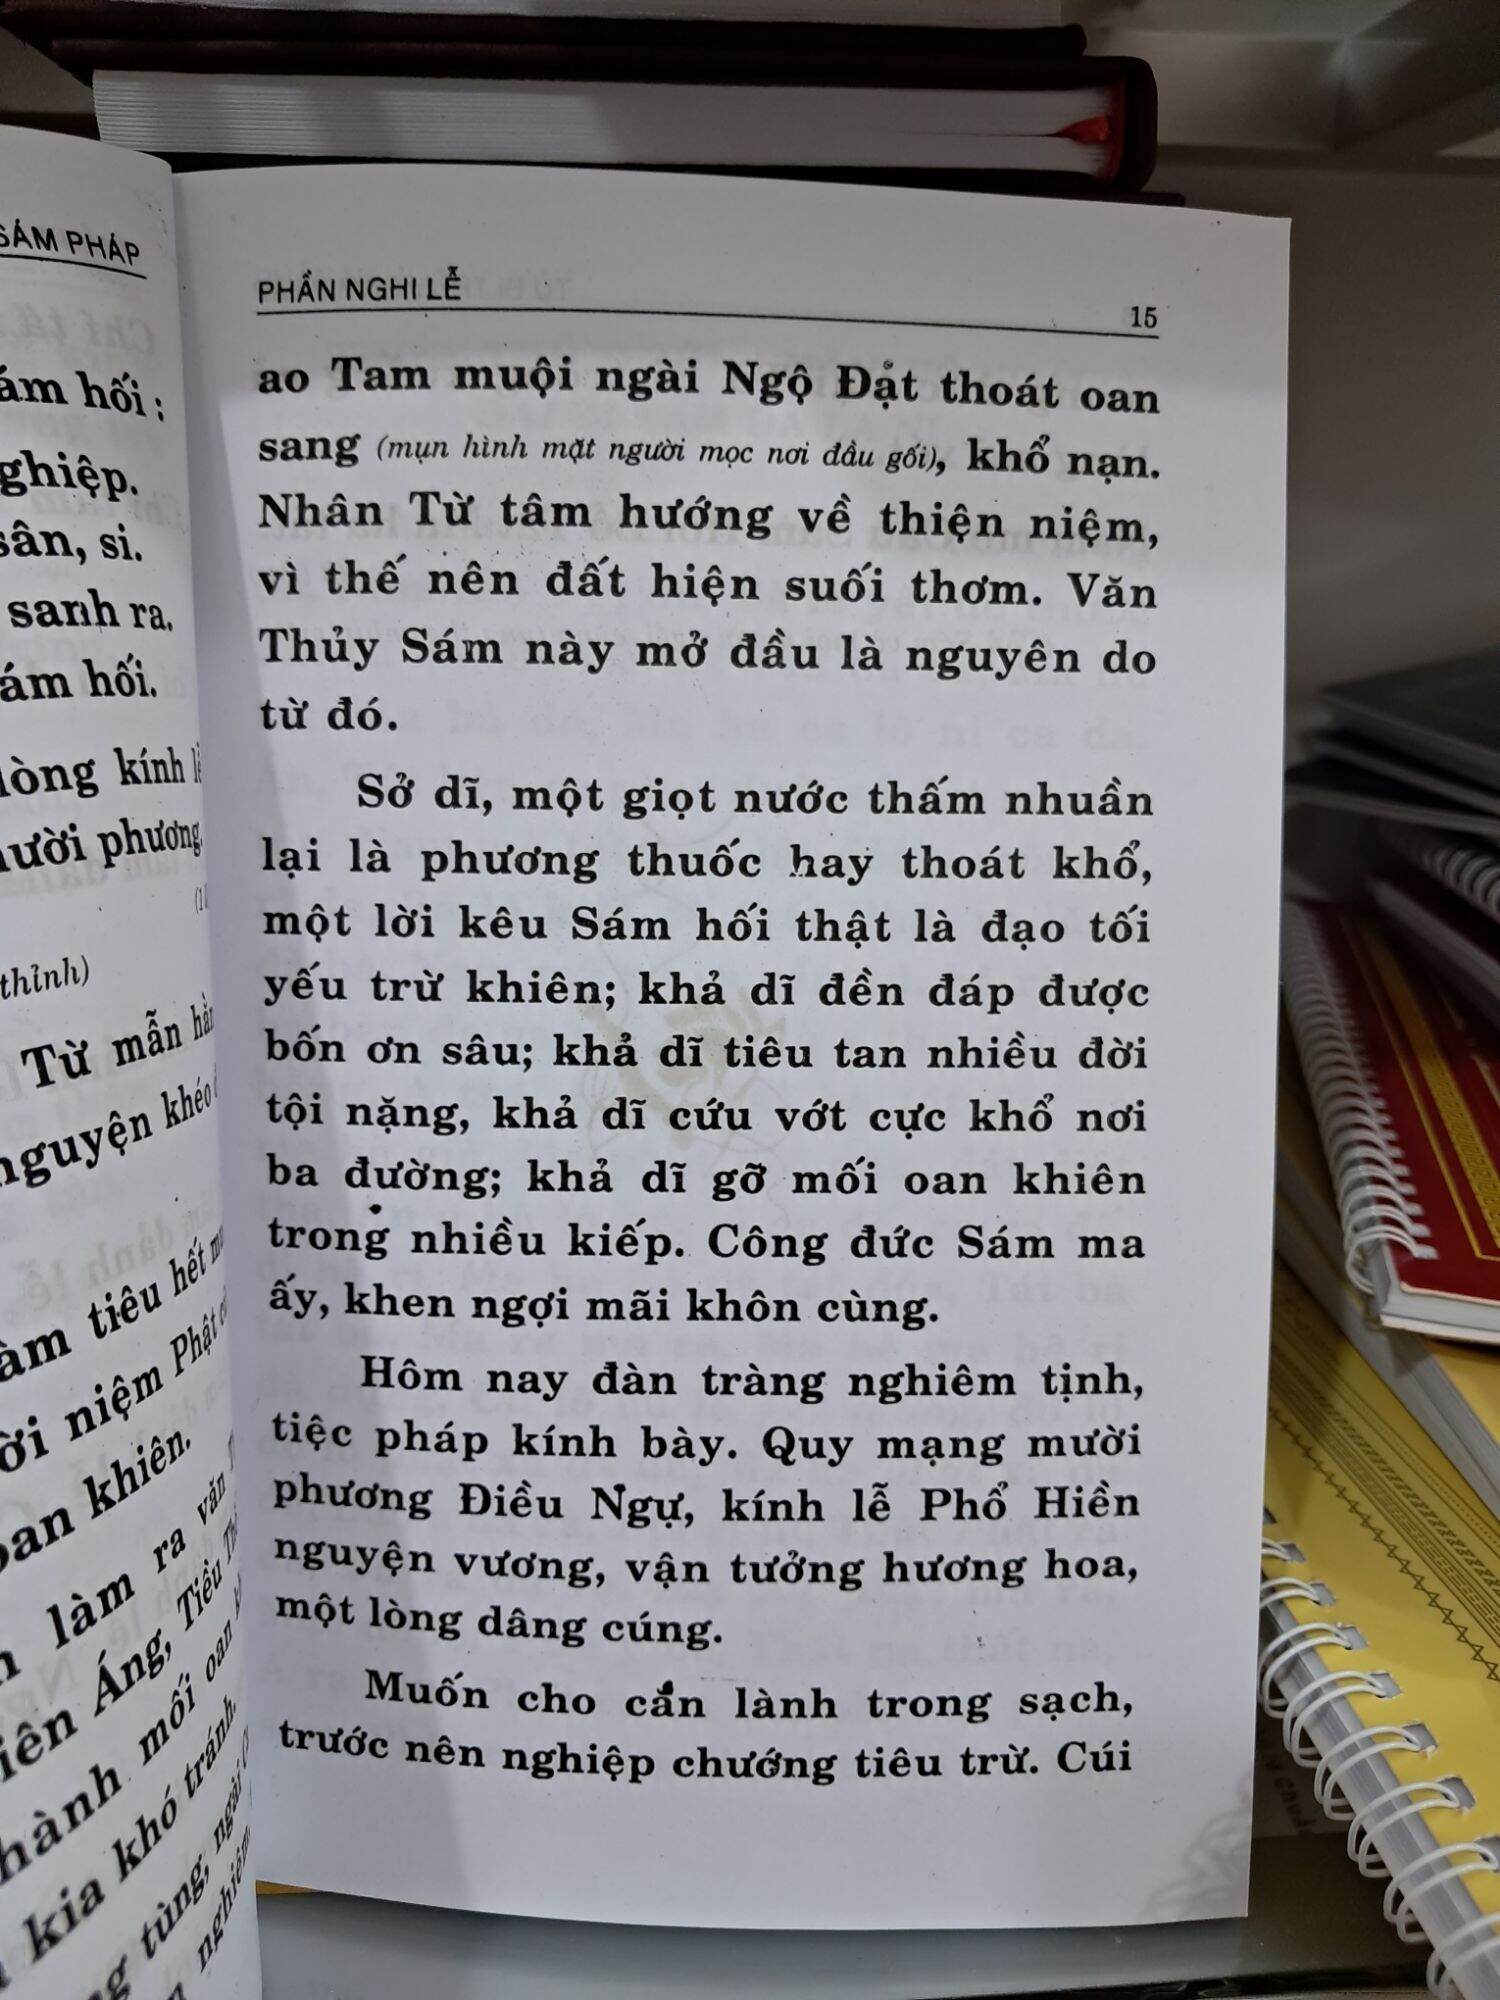 SÁM PHÁP
hối :
nghiệp.
sân, si.
sanh ra.
hối.
lòng kính
mười phương,
thỉnh)
Từ mẫn
nguyện khéo
tiêu hết
niệm Phật
oan khiên.
làm ra văn
Áng, Tiều
thành mối oan
kia khó tránh,
tùng, ngài
nghiêm
PHẦN NGHI LỄ 15
ao Tam muội ngài Ngộ Đạt thoát oan
sang (mụn hình mặt người mọc nơi đầu gối), khổ nạn.
Nhân Từ tâm hướng về thiện niệm,
vì thế nên đất hiện suối thơm. Văn
Thủy Sám này mở đầu là nguyên do
từ đó.
Sở dĩ, một giọt nước thấm nhuần
lại là phương thuốc hay thoát khổ,
một lời kêu Sám hối thật là đạo tối
yếu trừ khiên; khả dĩ đền đáp được
bốn ơn sâu; khả dĩ tiêu tan nhiều đời
tội nặng, khả dĩ cứu vớt cực khổ nơi
ba đường; khả dĩ gỡ mối oan khiên
trong nhiều kiếp. Công đức Sám ma
ấy, khen ngợi mãi khôn cùng.
Hôm nay đàn tràng nghiêm tịnh,
tiệc pháp kính bày. Quy mạng mười
phương Điều Ngự, kính lễ Phổ Hiền
nguyện vương, vận tưởng hương hoa,
một lòng dâng cúng.
Muốn cho căn lành trong sạch,
trước nên nghiệp chướng tiêu trừ. Cúi